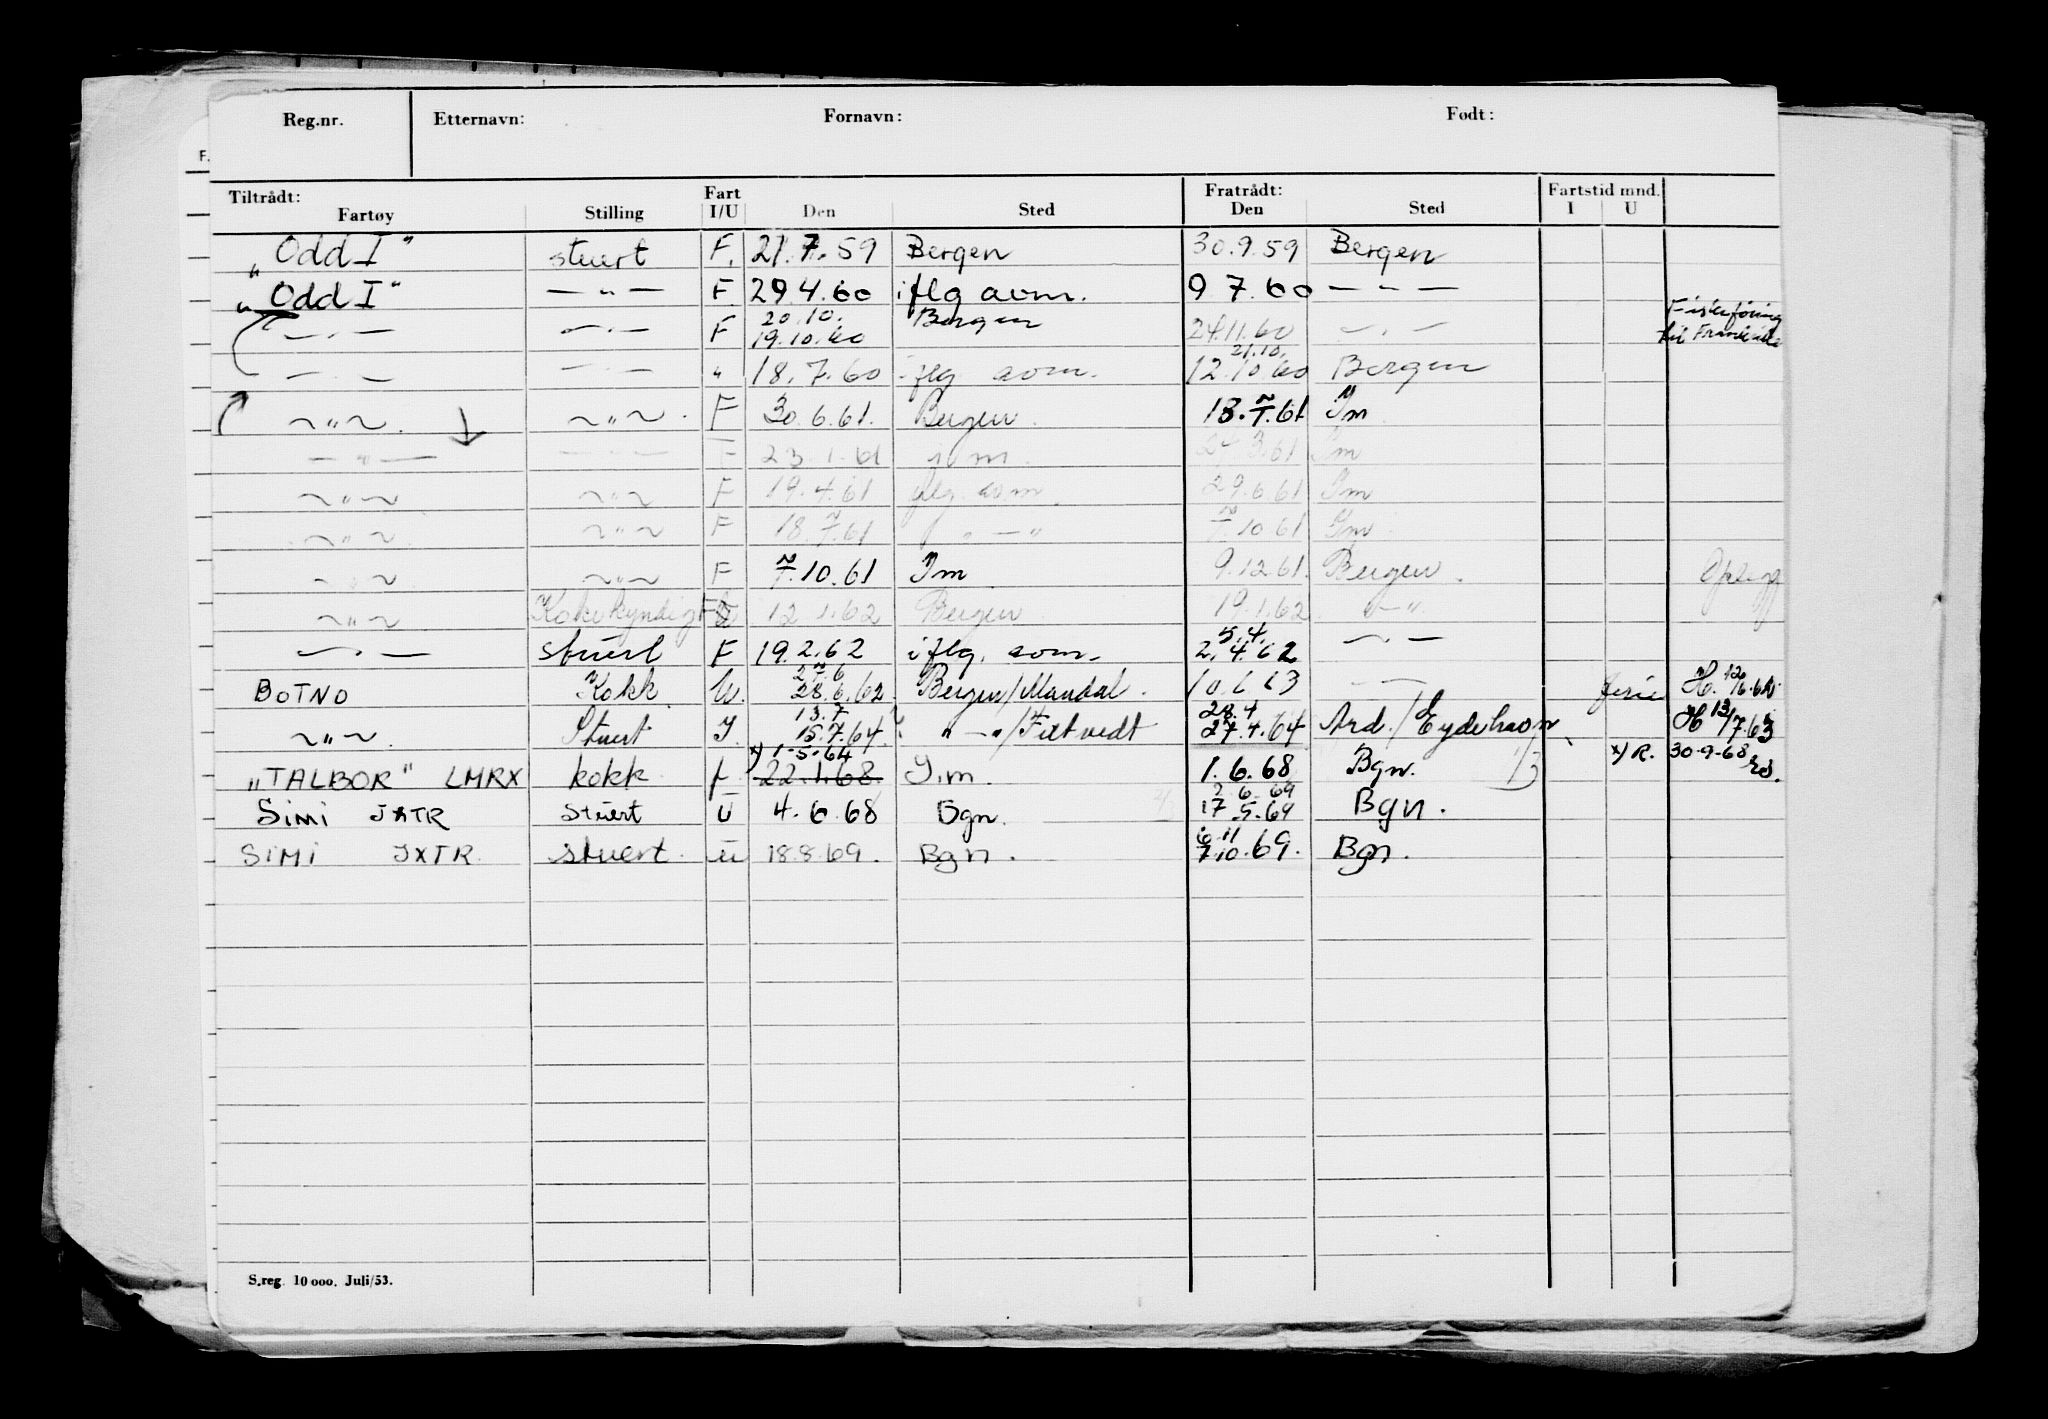 Reg.nr. Etternavn: Fornavn: Født:
F.
Tiltrådt: Fart Fratrådt: Fartstid mnd.
Fartøy Stilling I/U Den Sted Den Sted I U
"Odd I" stuert F. 21.7.59 Bergen 30.9.59 Bergen
"Odd I" — " — F 29.4.60 iflg avm. 9 7.60 — " —
— " — — " — F 20.10. 19.10.60 Bergen 24.11.60 — " — Fiskeføring til Frankrike
— " — — " — " 18.7.60 iflg avm. 21.10. 12.10.60 Bergen
~ " ~ . ~ " ~ . F 30.6.61. Bergen . 18.7.61 Im
— " — — " — F 23.1.61 i m. 24.3.61 Im
~ " ~ ~ " ~ F 19.4.61 iflg. avm. 29.6.61 Im
~ " ~ ~ " ~ F 18.7.61 " — " 7.10.61 Im
~ " ~ ~ " ~ F 7.10.61 Im 9.12.61. Bergen . Opplegg
~ " ~ Kokekyndig 12.1.62 Bergen 19.1.62 — " .
— " — stuert F 19.2.62 iflg. avm. 5.4. 2.4.62 — " —
BOTNO Kokk U. 27.6 28.6.62. Bergen/Mandal. 10.6.63 — — ferie
~ " ~ . Stuert I. 13.7 15.7.64. " — "/Filtvedt 28.4 27.4.64 Ard./Eydehavn H 13/7.63
"TALBOR" LMRX kokk f x) 1-5-64 22.1.68. I.m. 1.6.68 Bgn. 1/3 x) R. 30-9-68
SIMI JXTR stuert U 4.6.68 Bgn. 2.6.69 17.5.69 Bgn.
SIMI JXTR. stuert. u 18.8.69. Bgn. 6.11 7.10.69. Bgn.
S.reg. 10 000. Juli/53.